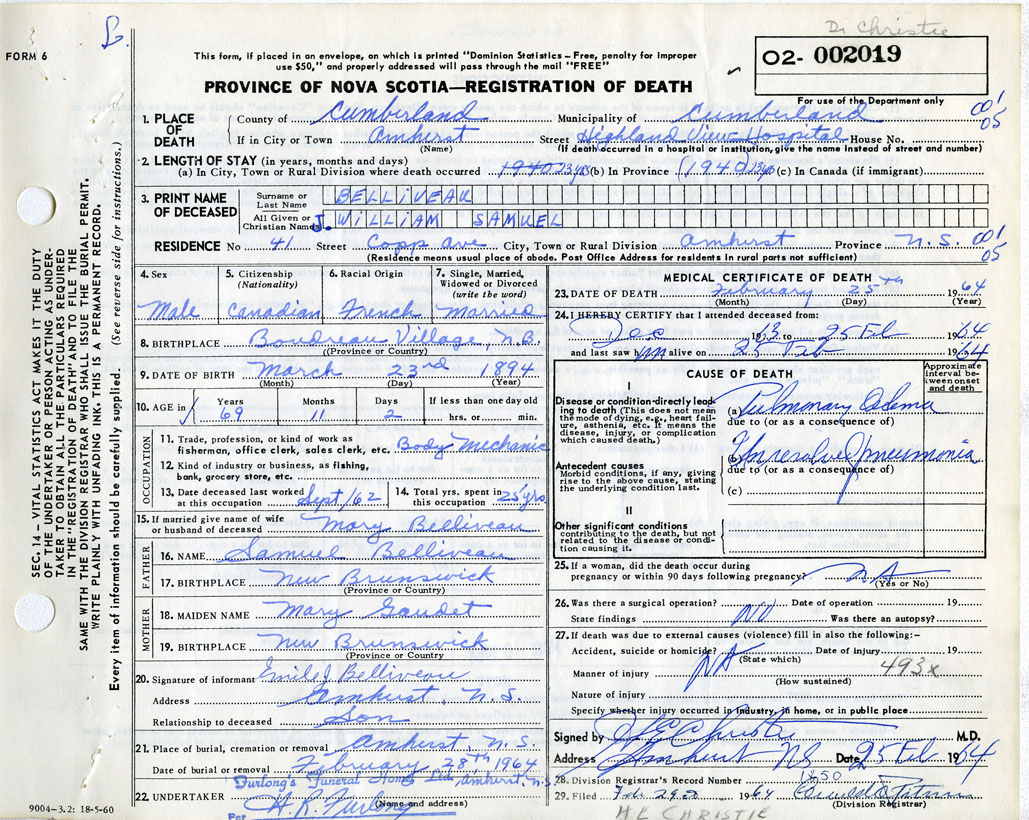 Dr Christie
FORM 6
This form, if placed in an envelope, on which is printed "Dominion Statistics—Free, penalty for improper
use $50," and properly addressed will pass through the mail "FREE"
PROVINCE OF NOVA SCOTIA—REGISTRATION OF DEATH
02- 002019
For use of the Department only
001
05
1. PLACE OF DEATH
County of Cumberland Municipality of Cumberland
If in City or Town Amherst Street Highland View Hospital House No.
(Name) (If death occurred in a hospital or institution, give the name instead of street and number)
2. LENGTH OF STAY (in years, months and days)
(a) In City, Town or Rural Division where death occurred 1940 23 yrs (b) In Province (1940) 23 yrs (c) In Canada (if immigrant)
3. PRINT NAME OF DECEASED
Surname or Last Name BELLIVEAU
All Given or Christian Names J. WILLIAM SAMUEL
RESIDENCE No 41 Street Copp Ave City, Town or Rural Division Amherst Province N.S. 001
05
(Residence means usual place of abode. Post Office Address for residents in rural parts not sufficient)
4. Sex Male
5. Citizenship (Nationality) Canadian
6. Racial Origin French
7. Single, Married, Widowed or Divorced (write the word) Married
8. BIRTHPLACE Boudreau Village, N.B.
(Province or Country)
9. DATE OF BIRTH March 23rd 1894
(Month) (Day) (Year)
10. AGE in Years 69 Months 11 Days 2 If less than one day old hrs. or min.
OCCUPATION
11. Trade, profession, or kind of work as fisherman, office clerk, sales clerk, etc. Body Mechanic
12. Kind of industry or business, as fishing, bank, grocery store, etc.
13. Date deceased last worked at this occupation Sept/62
14. Total yrs. spent in this occupation 25 yrs
15. If married give name of wife or husband of deceased Mary Belliveau
FATHER
16. NAME Samuel Belliveau
17. BIRTHPLACE New Brunswick
(Province or Country)
MOTHER
18. MAIDEN NAME Mary Gaudet
19. BIRTHPLACE New Brunswick
(Province or Country)
20. Signature of informant Emile J Belliveau
Address Amherst, N.S.
Relationship to deceased Son
21. Place of burial, cremation or removal Amherst, N.S.
Date of burial or removal February 28th 1964
Furlong's Funeral Home Ltd, Amherst, N.S.
22. UNDERTAKER Per H. R. Furlong
(Name and address)
9004-3.2: 18-5-60
MEDICAL CERTIFICATE OF DEATH
23. DATE OF DEATH February 25th 1964
(Month) (Day) (Year)
24. I HEREBY CERTIFY that I attended deceased from:
Dec 1963 to 25 Feb 1964
and last saw him alive on 25 Feb 1964
CAUSE OF DEATH
Approximate interval between onset and death
I
Disease or condition directly leading to death (This does not mean the mode of dying, e.g., heart failure, asthenia, etc. It means the disease, injury, or complication which caused death.)
(a) Pulmonary Odema
due to (or as a consequence of)
Antecedent causes
Morbid conditions, if any, giving rise to the above cause, stating the underlying condition last.
(b) Unresolved pneumonia
due to (or as a consequence of)
(c)
II
Other significant conditions contributing to the death, but not related to the disease or condition causing it.
25. If a woman, did the death occur during pregnancy or within 90 days following pregnancy? NA
(Yes or No)
26. Was there a surgical operation? Date of operation 19
State findings NO Was there an autopsy?
27. If death was due to external causes (violence) fill in also the following:—
Accident, suicide or homicide? Date of injury 19
(State which)
Manner of injury NA 493x
(How sustained)
Nature of injury
Specify whether injury occurred in industry, in home, or in public place
Signed by Christie M.D.
Address Amherst NS Date 25 Feb 1964
28. Division Registrar's Record Number 1850
29. Filed 1964
(Division Registrar)
H E CHRISTIE
SEC. 14—VITAL STATISTICS ACT MAKES IT THE DUTY
OF THE UNDERTAKER OR PERSON ACTING AS UNDER-
TAKER TO OBTAIN ALL THE PARTICULARS REQUIRED
IN THE "REGISTRATION OF DEATH" AND TO FILE THE
SAME WITH THE DIVISION REGISTRAR WHO SHALL ISSUE THE BURIAL PERMIT.
WRITE PLAINLY WITH UNFADING INK. THIS IS A PERMANENT RECORD.
Every item of information should be carefully supplied. (See reverse side for instructions.)